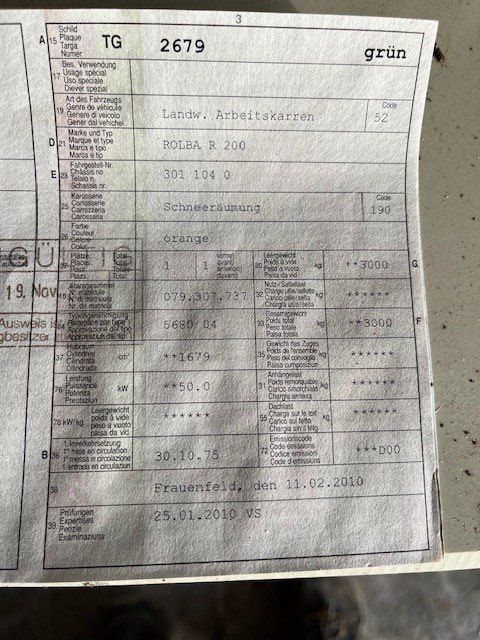 3
A 15 Schild Plaque Targa Numer TG 2679 grün
17 Bes. Verwendung
Usage spécial
Uso speciale
Diever spezial
19 Art des Fahrzeugs
Genre de véhicule
Genere di veicolo
Gener dal vehichel
Landw. Arbeitskarren
Code
52
D 21 Marke und Typ
Marque et type
Marca e tipo
Marca e tip
ROLBA R 200
E 23 Fahrgestell-Nr.
Châssis no
Telaio n.
Schassis nr.
301 104 0
25 Karosserie
Carrosserie
Carrozzeria
Carossaria
Schneeräumung
Code
190
26 Farbe
Couleur
Colore
Colur
orange
Plätze
Places
Posti
Plazs
Total
Totale
Total
1 1
vorne
avant
Leergewicht
Poids à vide
Peso a vuoto
Paisa da vid
kg
**3000
G
Stammnummer
No matricule
N. di matricola
Nr. da matricla
079.307.737
32 Nutz-/Sattellast
Charge utile/sellette
Carico utile/sella
kg
******
Typengenehmigung
Réception par type
Approvazione del tipo
5680 04
33 Gesamtgewicht
Poids total
Peso totale
Paisa totala
kg
**3000
F
37 Hubraum
Cylindrée
Cilindrata
Cilindrada
cm³
**1679
35 Gewicht des Zuges
Poids de l'ensemble
Peso del convoglio
Paisa cumposiziun
kg
******
76 Leistung
Puissance
Potenza
Prestaziun
kW
**50.0
31 Anhängelast
Poids remorquable
Carico rimorchiato
Chargia annexa
kg
******
78 kW/kg
Leergewicht
poids à vide
peso a vuoto
paisa da vid
******
55 Dachlast
Charge sur le toit
Carico sul tetto
Chargia sin il tetg
kg
******
B 36 1. Inverkehrsetzung
1re mise en circulation
1a messa in circolazione
1. entrada en circulaziun
30.10.75
72 Emissionscode
Code émissions
Codice emissioni
Code d'emissiuns
***D00
38 Frauenfeld, den 11.02.2010
39 Prüfungen
Expertises
Perizie
Examinaziuns
25.01.2010 VS
19. Nov
Ausweis is